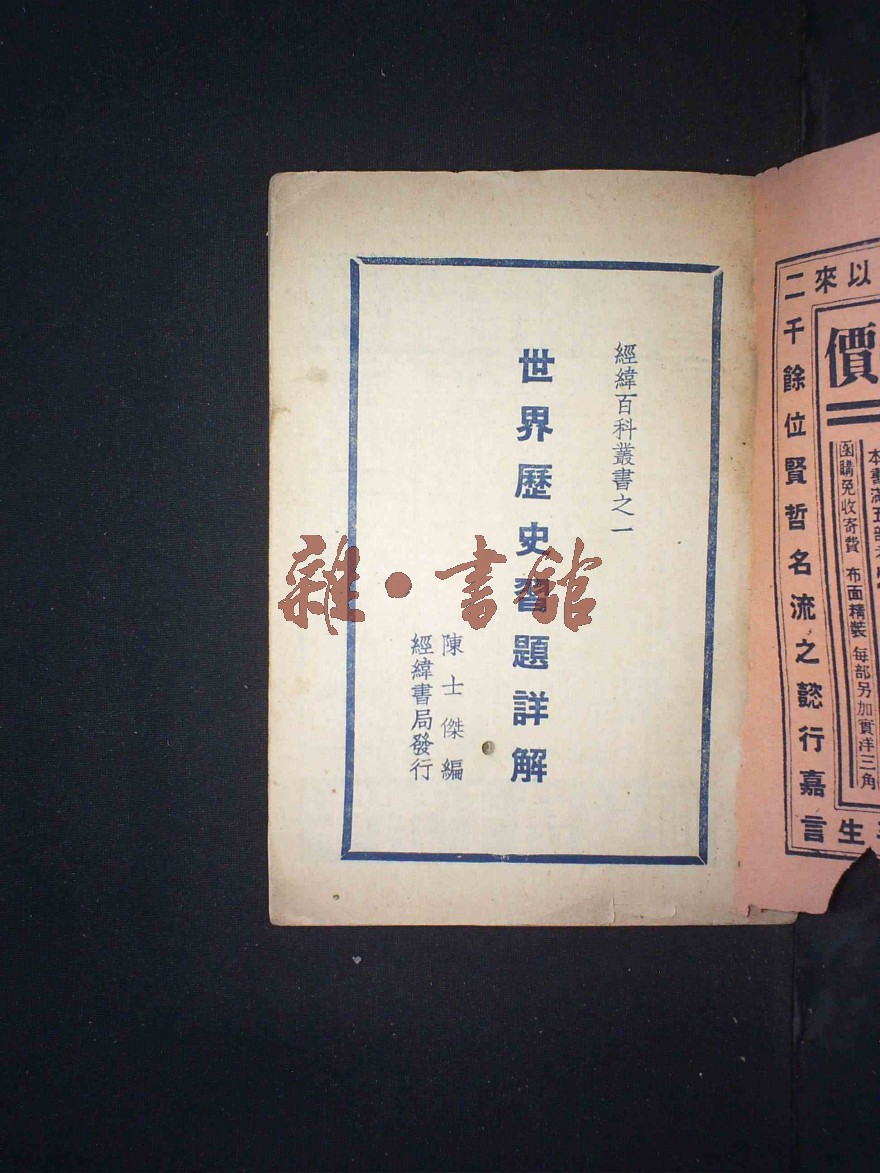 經緯百科叢書之一
世界歷史習題詳解
陳士傑編
經緯書局發行
雜·書館
以來
二千餘位賢哲名流之懿行嘉言
價
函購免收寄費 布面精裝 每部另加實洋三角
本書滿五部
生